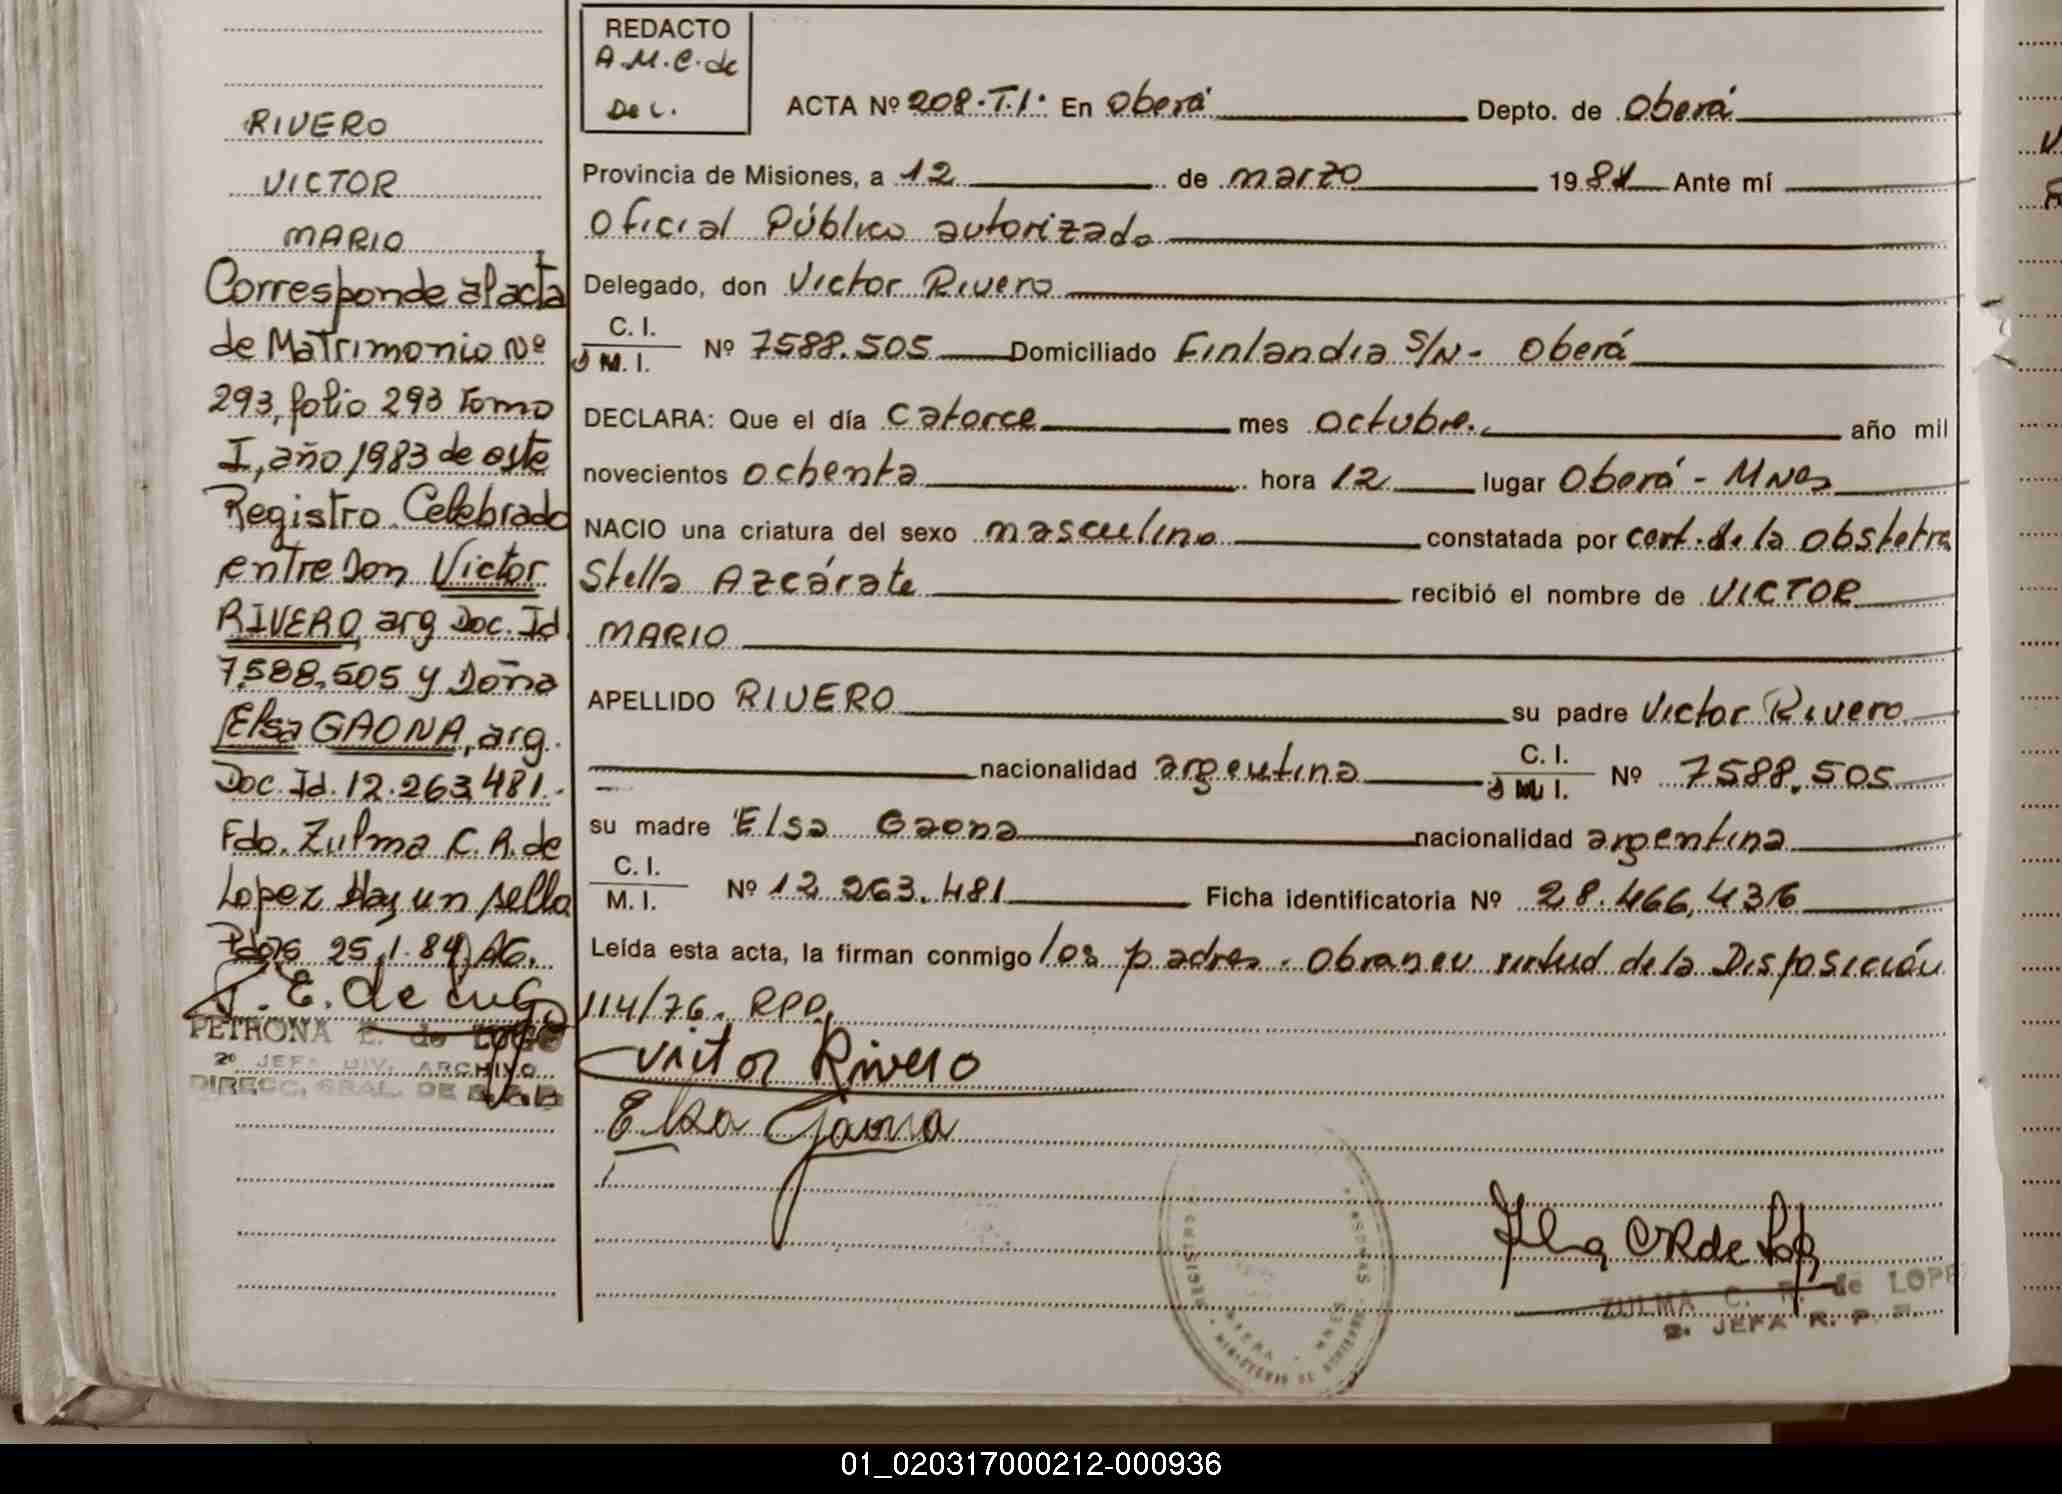 RIVERO
VICTOR
MARIO
Corresponde al acta
de Matrimonio Nº
293, folio 293 Tomo
I, año 1983 de este
Registro Celebrado
entre Don Victor
RIVERO arg Doc. Id.
7.588.505 y Doña
Elsa GAONA, arg.
Doc. Id. 12.263.481.-
Fdo. Zulma C. R. de
Lopez Hay un sello
Pdas 25.1.84 AG.
PETRONA E. de LUGO
2º JEFA DIV. ARCHIVO
DIRECC. GRAL. DE
REDACTO
A.M.C. de
De L.
ACTA Nº 208-T.I. En Oberá Depto. de Oberá
Provincia de Misiones, a 12 de marzo 1981 Ante mí
Oficial Público autorizado
Delegado, don Victor Rivero
C. I.
M. I. Nº 7588.505 Domiciliado Finlandia S/N- Oberá
DECLARA: Que el día catorce mes octubre año mil
novecientos ochenta hora 12 lugar Oberá - Mnes
NACIO una criatura del sexo masculino constatada por cert. de la obstetra
Stella Azcárate recibió el nombre de VICTOR
MARIO
APELLIDO RIVERO su padre Victor Rivero
nacionalidad argentina C. I.
M. I. Nº 7588.505
su madre Elsa Gaona nacionalidad argentina
C. I.
M. I. Nº 12 263.481 Ficha identificatoria Nº 28.466,436
Leída esta acta, la firman conmigo los padres. Obran en virtud de la Disposición
114/76. RPP.
Victor Rivero
Elsa Gaona
ZULMA C. R. de LOPE
2ª JEFA R. P. P.
01_020317000212-000936